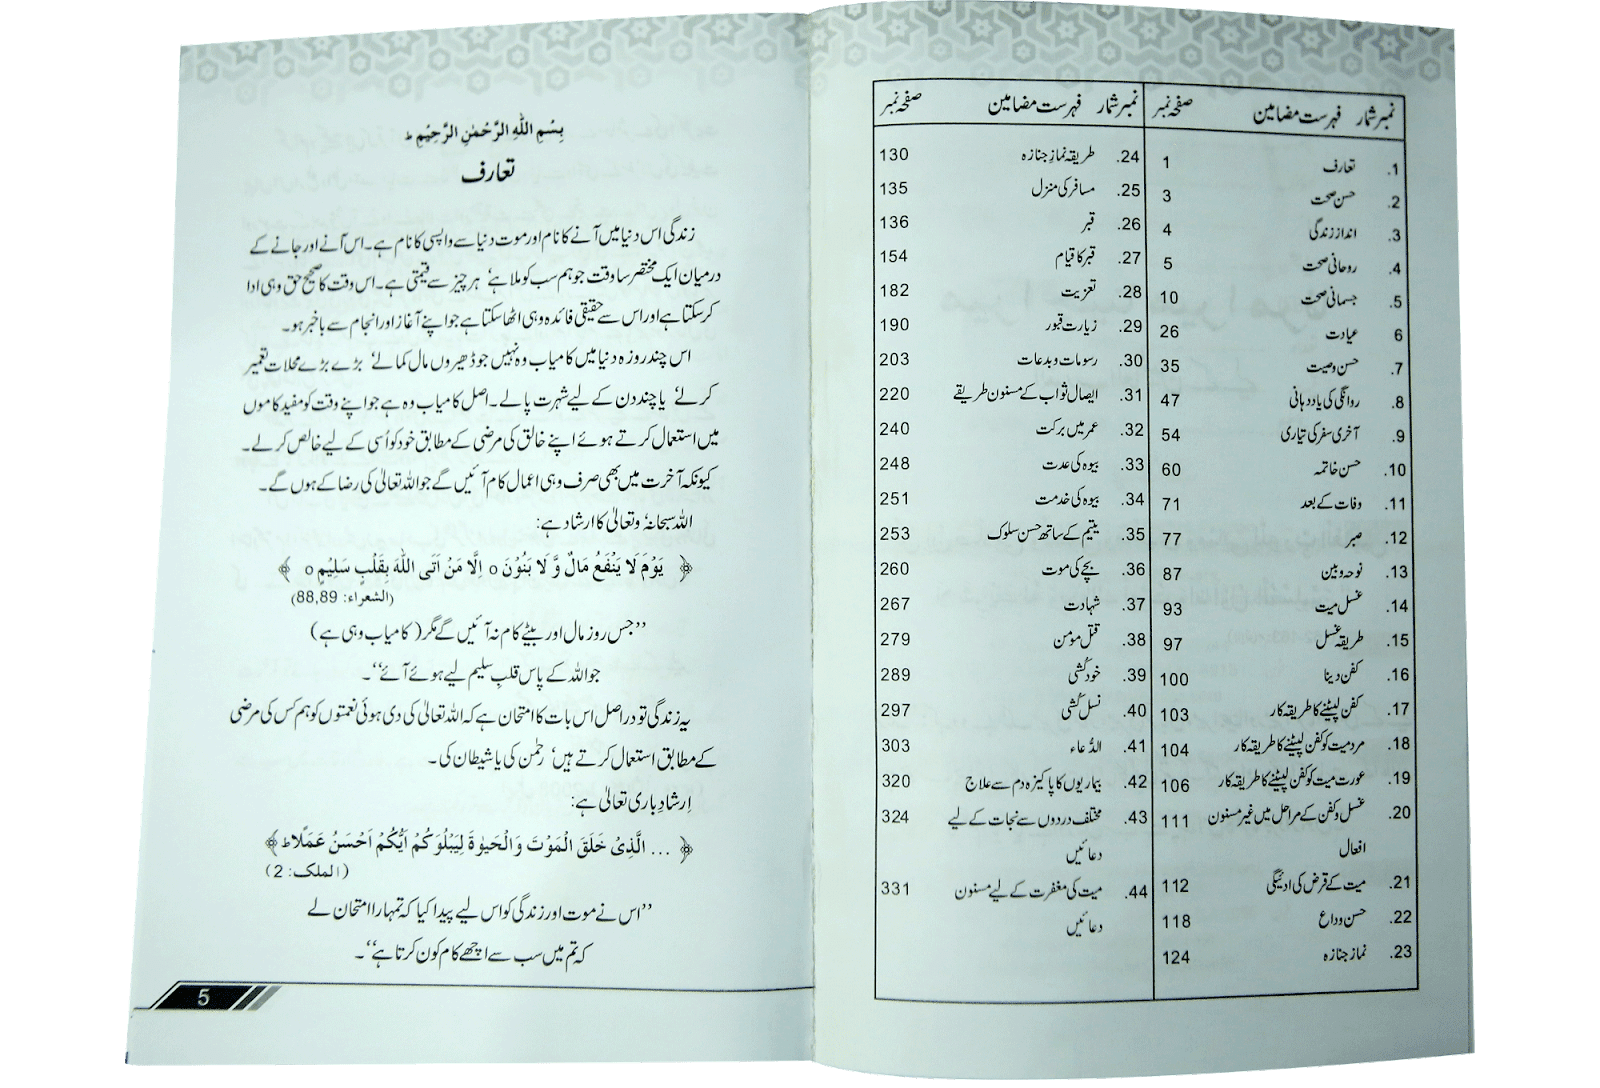 نمبر شمار فہرست مضامین صفحہ نمبر
1. تعارف 1
2. حسن صحت 3
3. انداز زندگی 4
4. روحانی صحت 5
5. جسمانی صحت 10
6 عیادت 26
7. حسن وصیت 35
8. روانگی کی یاد دہانی 47
9. آخری سفر کی تیاری 54
10. حسن خاتمہ 60
11. وفات کے بعد 71
12. صبر 77
13. نوحہ و بین 87
14. غسل میت 93
15. طریقہ غسل 97
16. کفن دینا 100
17. کفن لپیٹنے کا طریقہ کار 103
18. مرد میت کو کفن لپیٹنے کا طریقہ کار 104
19. عورت میت کو کفن لپیٹنے کا طریقہ کار 106
20. غسل و کفن کے مراحل میں غیر مسنون 111
افعال
21. میت کے قرض کی ادئیگی 112
22. حسن وداع 118
23. نماز جنازہ 124
نمبر شمار فہرست مضامین صفحہ نمبر
24. طریقہ نمازِ جنازہ 130
25. مسافر کی منزل 135
26. قبر 136
27. قبر کا قیام 154
28. تعزیت 182
29. زیارت قبور 190
30. رسومات و بدعات 203
31. ایصال ثواب کے مسنون طریقے 220
32. عمر میں برکت 240
33. بیوہ کی عدت 248
34. بیوہ کی خدمت 251
35. یتیم کے ساتھ حسن سلوک 253
36. بچے کی موت 260
37. شہادت 267
38. قتل مومن 279
39. خود کُشی 289
40. نسل کُشی 297
41. الدُعاء 303
42. بیماریوں کا پاکیزہ دم سے علاج 320
43. مختلف دردوں سے نجات کے لیے 324
دعائیں
44. میت کی مغفرت کے لیے مسنون 331
دعائیں
بِسْمِ اللّٰهِ الرَّحْمٰنِ الرَّحِيْمِ ط
تعارف
زندگی اس دنیا میں آنے کا نام اور موت دنیا سے واپسی کا نام ہے۔ اس آنے اور جانے کے
درمیان ایک مختصر سا وقت جو ہم سب کو ملا ہے‘ ہر چیز سے قیمتی ہے۔ اس وقت کا صحیح حق وہی ادا
کر سکتا ہے اور اس سے حقیقی فائدہ وہی اٹھا سکتا ہے جو اپنے آغاز اور انجام سے باخبر ہو۔
اس چند روزہ دنیا میں کامیاب وہ نہیں جو ڈھیروں مال کما لے‘ بڑے بڑے محلات تعمیر
کر لے‘ یا چند دن کے لیے شہرت پا لے۔ اصل کامیاب وہ ہے جو اپنے وقت کو مفید کاموں
میں استعمال کرتے ہوئے اپنے خالق کی مرضی کے مطابق خود کو اُسی کے لیے خالص کر لے۔
کیونکہ آخرت میں بھی صرف وہی اعمال کام آئیں گے جو اللہ تعالیٰ کی رضا کے ہوں گے۔
اللہ سبحانہٗ وتعالیٰ کا ارشاد ہے:
﴿ يَوْمَ لَا يَنْفَعُ مَالٌ وَّلَا بَنُوْنَ o اِلَّا مَنْ اَتَى اللّٰهَ بِقَلْبٍ سَلِيْمٍ o ﴾
(الشعراء: 88,89)
”جس روز مال اور بیٹے کام نہ آئیں گے مگر (کامیاب وہی ہے)
جو اللہ کے پاس قلبِ سلیم لیے ہوئے آئے“۔
یہ زندگی تو دراصل اس بات کا امتحان ہے کہ اللہ تعالیٰ کی دی ہوئی نعمتوں کو ہم کس کی مرضی
کے مطابق استعمال کرتے ہیں‘ رحمٰن کی یا شیطان کی۔
اِرشادِ باری تعالیٰ ہے:
﴿ ... الَّذِيْ خَلَقَ الْمَوْتَ وَالْحَيٰوةَ لِيَبْلُوَكُمْ اَيُّكُمْ اَحْسَنُ عَمَلًا ط ﴾
(الملک: 2)
”اس نے موت اور زندگی کو اس لیے پیدا کیا کہ تمہارا امتحان لے
کہ تم میں سب سے اچھے کام کون کرتا ہے“۔
5